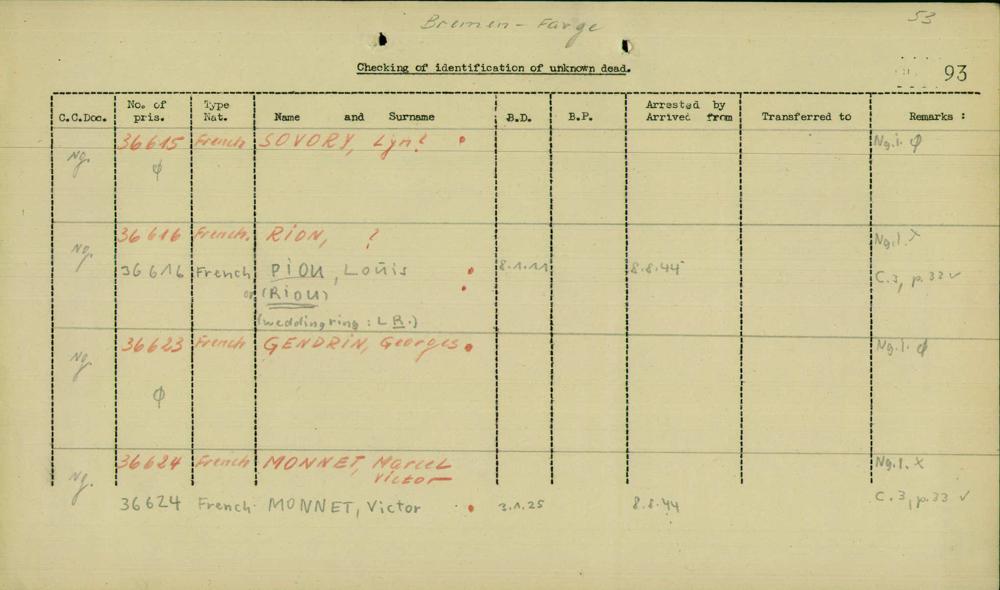 Bremen - Farge
53
Checking of identification of unknown dead.
93
C.C.Doc. No. of pris. Type Nat. Name and Surname B.D. B.P. Arrested by Arrived from Transferred to Remarks :
Ng. 36615 French SOVORY, Lyn? Ng.1. φ
φ
Ng. 36616 French. RION, ? Ng.1. X
36616 French PIOU, Louis 8.1.11 8.8.44 C.3, p.33 ✓
or (RIOU)
(wedding ring : L R.)
Ng. 36623 French GENDRIN, Georges Ng.1. φ
φ
Ng. 36624 French MONNET, Marcel Ng.1. X
Victor
36624 French MONNET, Victor 3.1.25 8.8.44 C.3, p.33 ✓